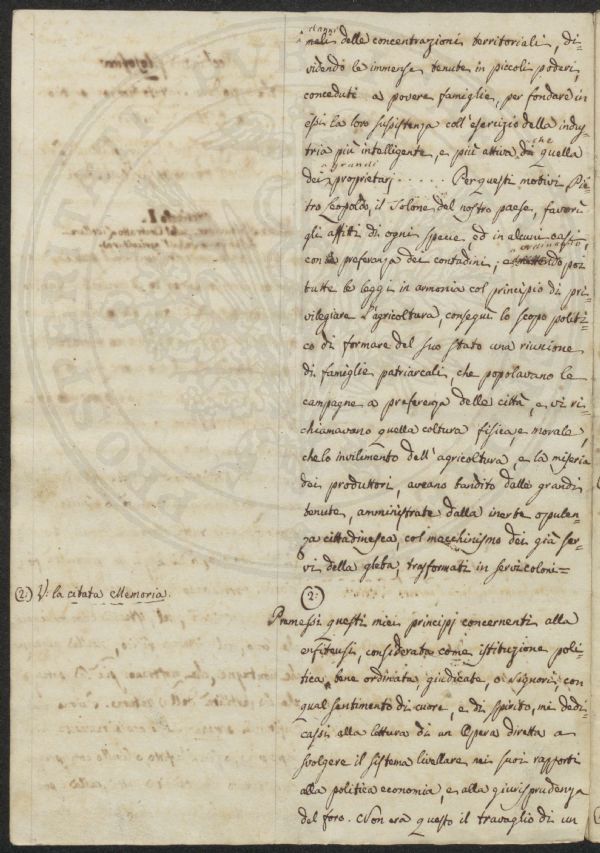 i danni
neli delle concentrazioni territoriali, di-
videndo le immense tenute in piccoli poderi,
conceduti a povere famiglie, per fondare in
essi la loro sussistenza coll'esercizio della indus-
tria più intelligente, e più attiva di quella
che
a grandi
dei proprietarj . . . . . . Per questi motivi Pie-
tro Leopoldo, il Solone del nostro paese, favorì
gli affitti di ogni specie, ed in alcuni casi,
con la preferenza dei contadini; e mettendo poi
ordinando
tutte le leggi in armonia col principio di pri-
vilegiare l'agricoltura, conseguì lo scopo politi-
co di formare del suo stato una riunione
di famiglie patriarcali, che popolavano le
campagne a preferenza delle città, e vi ri-
chiamavano quella coltura fisica, e morale,
che lo invilimento dell'agricoltura, e la miseria
dei produttori, aveano bandito dalle grandi
tenute, amministrate dalla inerte opulen-
za cittadinesca, col macchinismo dei già ser-
vi della gleba, trasformati in servi coloni=
(2.) V. la citata Memoria.
(2.)
Premessi questi miei principj concernenti alla
enfiteusi, considerata come istituzione poli-
tica, bene ordinata, giudicate, o Signori, con
qual sentimento di cuore, e di spirito, mi dedi-
cassi alla lettura di un Opera diretta a
svolgere il sistema livellare nei suoi rapporti
alla politica economia, e alla giurisprudenza
del foro. Non era questo il travaglio di un